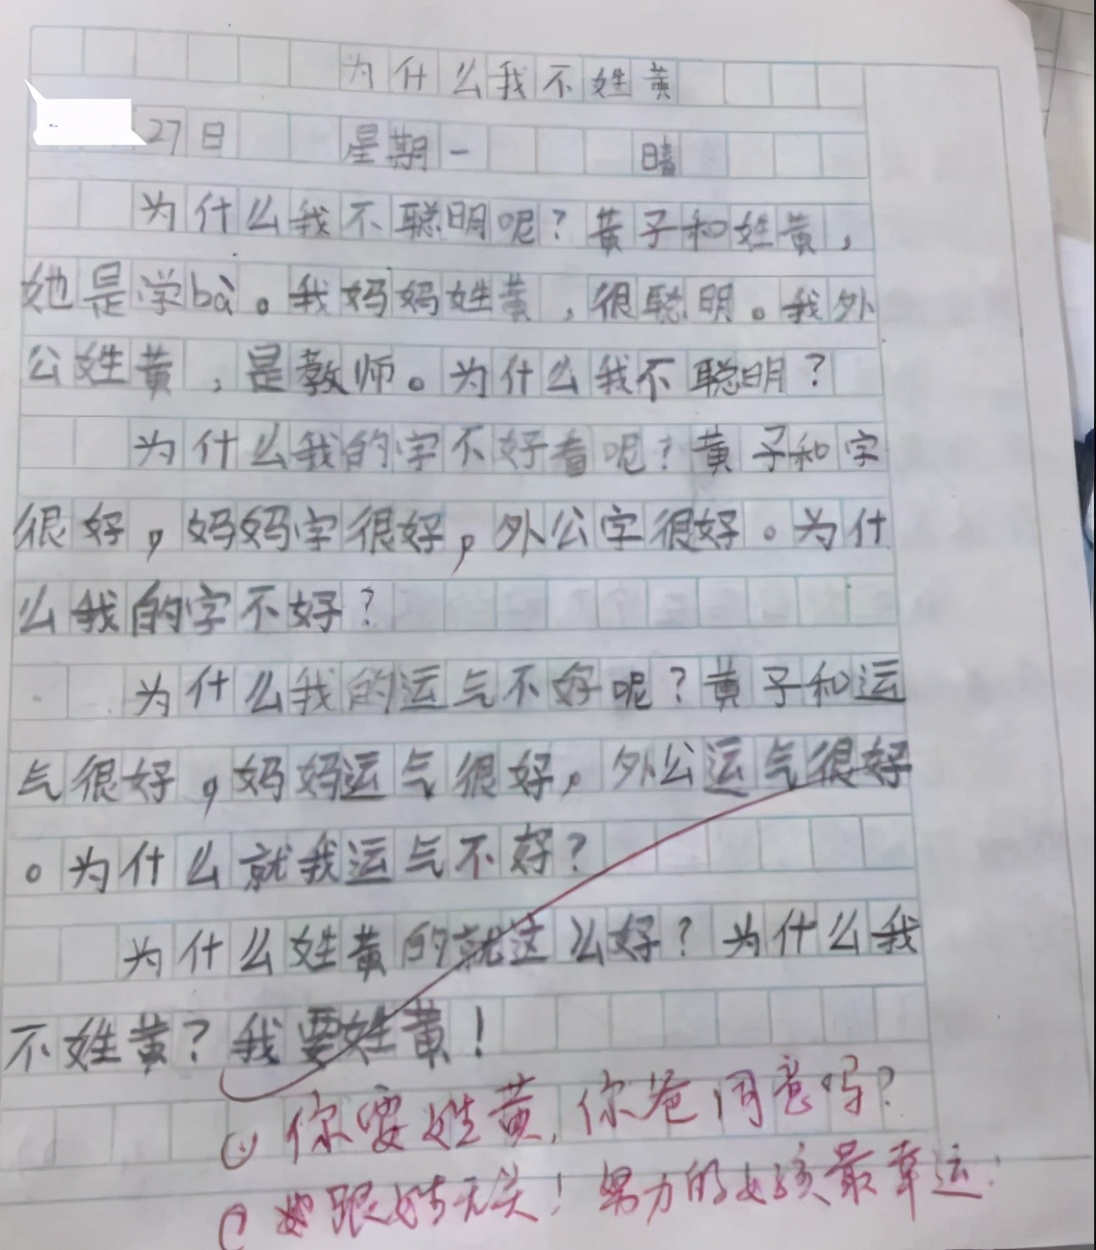 为什么我不姓黄
27日 星期一 晴
为什么我不聪明呢?黄子和姓黄,
她是学bà。我妈妈姓黄,很聪明。我外
公姓黄,是教师。为什么我不聪明?
为什么我的字不好看呢?黄子和字
很好,妈妈字很好,外公字很好。为什
么我的字不好?
为什么我的运气不好呢?黄子和运
气很好,妈妈运气很好,外公运气很好
。为什么就我运气不好?
为什么姓黄的就这么好?为什么我
不姓黄?我要姓黄!
你要姓黄,你爸同意吗?
跟姓无关!努力的女孩最幸运!